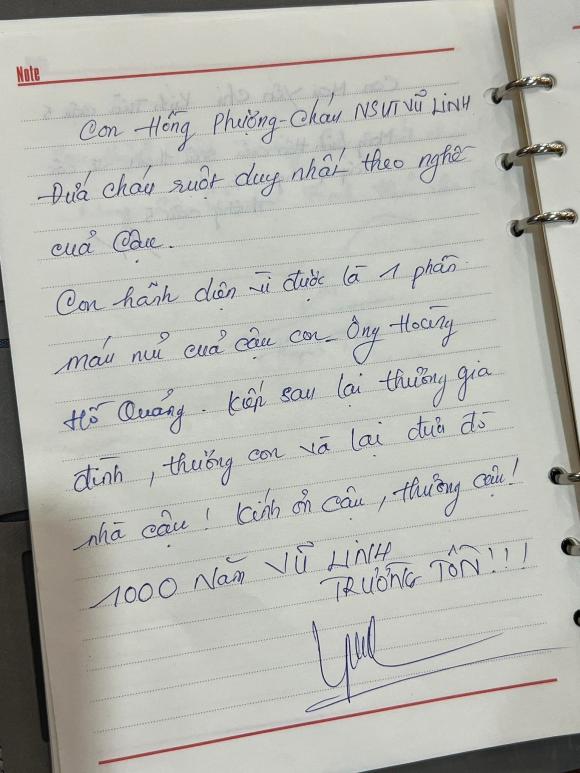 Note
Con Hồng Phượng - Cháu NSƯT VŨ LINH
Đứa cháu ruột duy nhất theo nghề
cuả Cậu.
Con hãnh diện vì được là 1 phần
máu mủ cuả cậu con - Ông Hoàng
Hồ Quảng. Kiếp sau lại thương gia
đình, thương con và lại đưa đò
nhà cậu! Kính ơn cậu, thương cậu!
1000 NĂM VŨ LINH
TRƯỜNG TỒN!!!